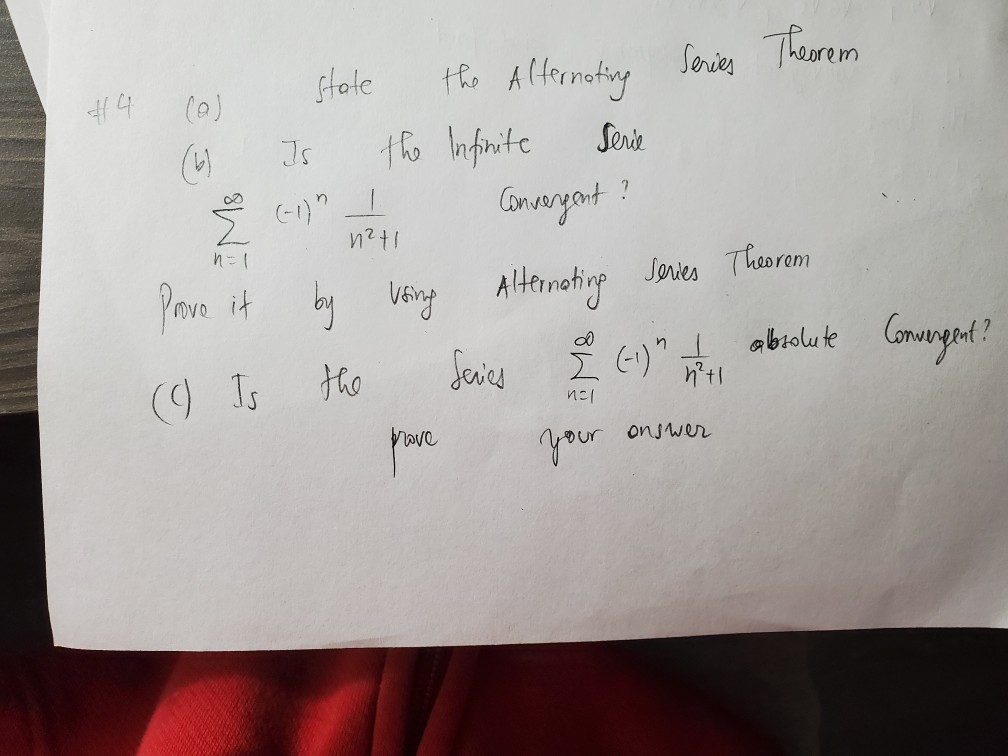 #4 (a) State the Alternating Series Theorem
(b) Is the Infinite Serie
∞ Σ n=1 (-1)^n 1/(n²+1) Convergent?
Prove it by Using Alternating Series Theorem
(C) Is the Series ∞ Σ n=1 (-1)^n 1/(n²+1) absolute Convergent?
prove your answer